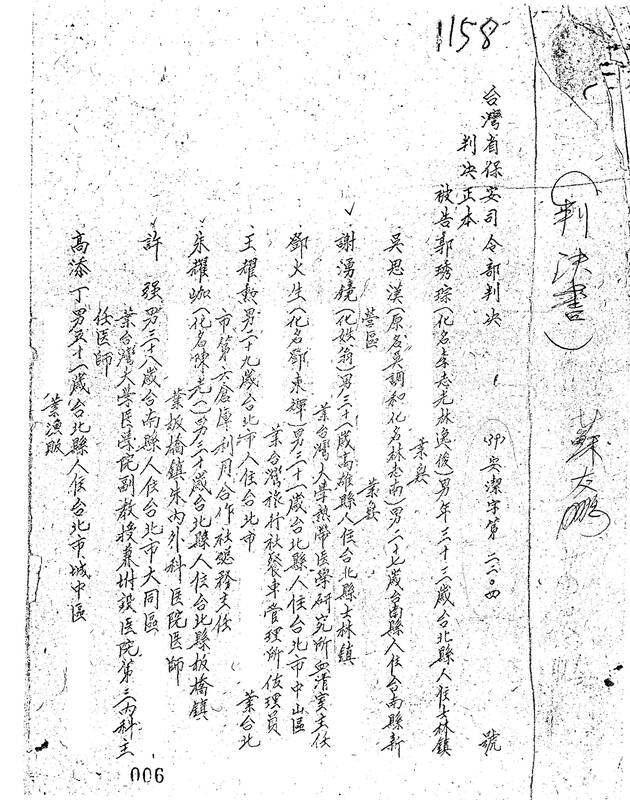 1158
(判決書)
蘇友鵬
台灣省保安司令部判決 安潔字第二二〇四號
判决正本
被告郭琇琮(化名李志光林逸俊)男年三十三歲台北縣人住士林鎮
業醫
吳思漢(原名吳調和化名林李南)男二十七歲台南縣人住台南縣新
營區 業醫
謝湧鏡(化姓翁)男三十一歲高雄縣人住台北縣士林鎮
業台灣大學熱帶医學研究所血清室主任
鄧火生(化名鄧東輝)男三十一歲台北縣人住台北市中山區
業台灣旅行社發車管理所佐理員
王耀勲男二十九歲台北市人住台北市 業台北
市第六倉庫利用合作社總務主任
朱耀珈(化名陳老)男三十歲台北縣人住台北縣板橋鎮
業板橋鎮朱內外科医院医師
許強男三十八歲台南縣人住台北市大同區
業台灣大學医學院副教授兼附設医院第三內科主
任医師
高添丁男五十一歲台北縣人住台北市城中區
業漁販
006